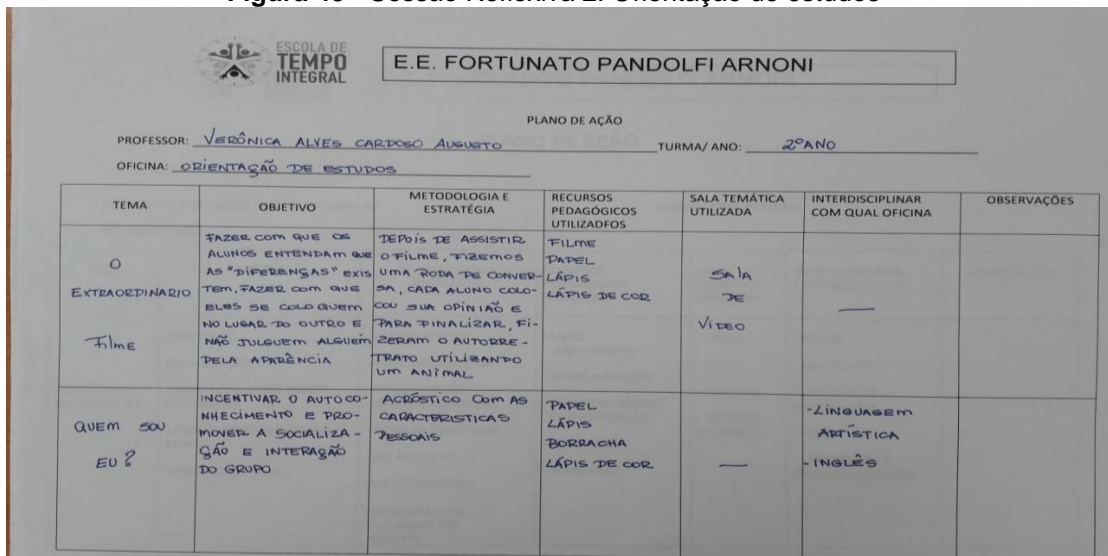 Figura 40 - Sessão Reflexiva 2: Orientação de estudos
ESCOLA DE
TEMPO
INTEGRAL
E.E. FORTUNATO PANDOLFI ARNONI
PLANO DE AÇÃO
PROFESSOR: VERÔNICA ALVES CARDOSO AUGUSTO TURMA/ ANO: 2º ANO
OFICINA: ORIENTAÇÃO DE ESTUDOS
TEMA
OBJETIVO
METODOLOGIA E
ESTRATÉGIA
RECURSOS
PEDAGÓGICOS
UTILIZADFOS
SALA TEMÁTICA
UTILIZADA
INTERDISCIPLINAR
COM QUAL OFICINA
OBSERVAÇÕES
O
EXTRAORDINARIO
Filme
FAZER COM QUE OS
ALUNOS ENTENDAM QUE
AS "DIFERENGAS" EXIS
TEM, FAZER COM QUE
ELES SE COLOQUEM
NO LUGAR DO OUTRO E
NÃO JULGUEM ALGUÉM
PELA APARÊNCIA
DEPOIS DE ASSISTIR
O FILME, FIZEMOS
UMA RODA DE CONVER-
SA, CADA ALUNO COLO-
COU SUA OPINIÃO E
PARA FINALIZAR, FI-
ZERAM O AUTORRE-
TRATO UTILIZANDO
UM ANIMAL
FILME
PAPEL
LÁPIS
LÁPIS DE COR
SALA
DE
VÍDEO
—
QUEM SOU
EU?
INCENTIVAR O AUTOCO-
NHECIMENTO E PRO-
MOVER A SOCIALIZA-
ÇÃO E INTERAÇÃO
DO GRUPO
ACRÓSTICO COM AS
CARACTERISTICAS
PESSOAIS
PAPEL
LÁPIS
BORRACHA
LÁPIS DE COR
—
-LINGUAGEM
ARTÍSTICA
- INGLÊS